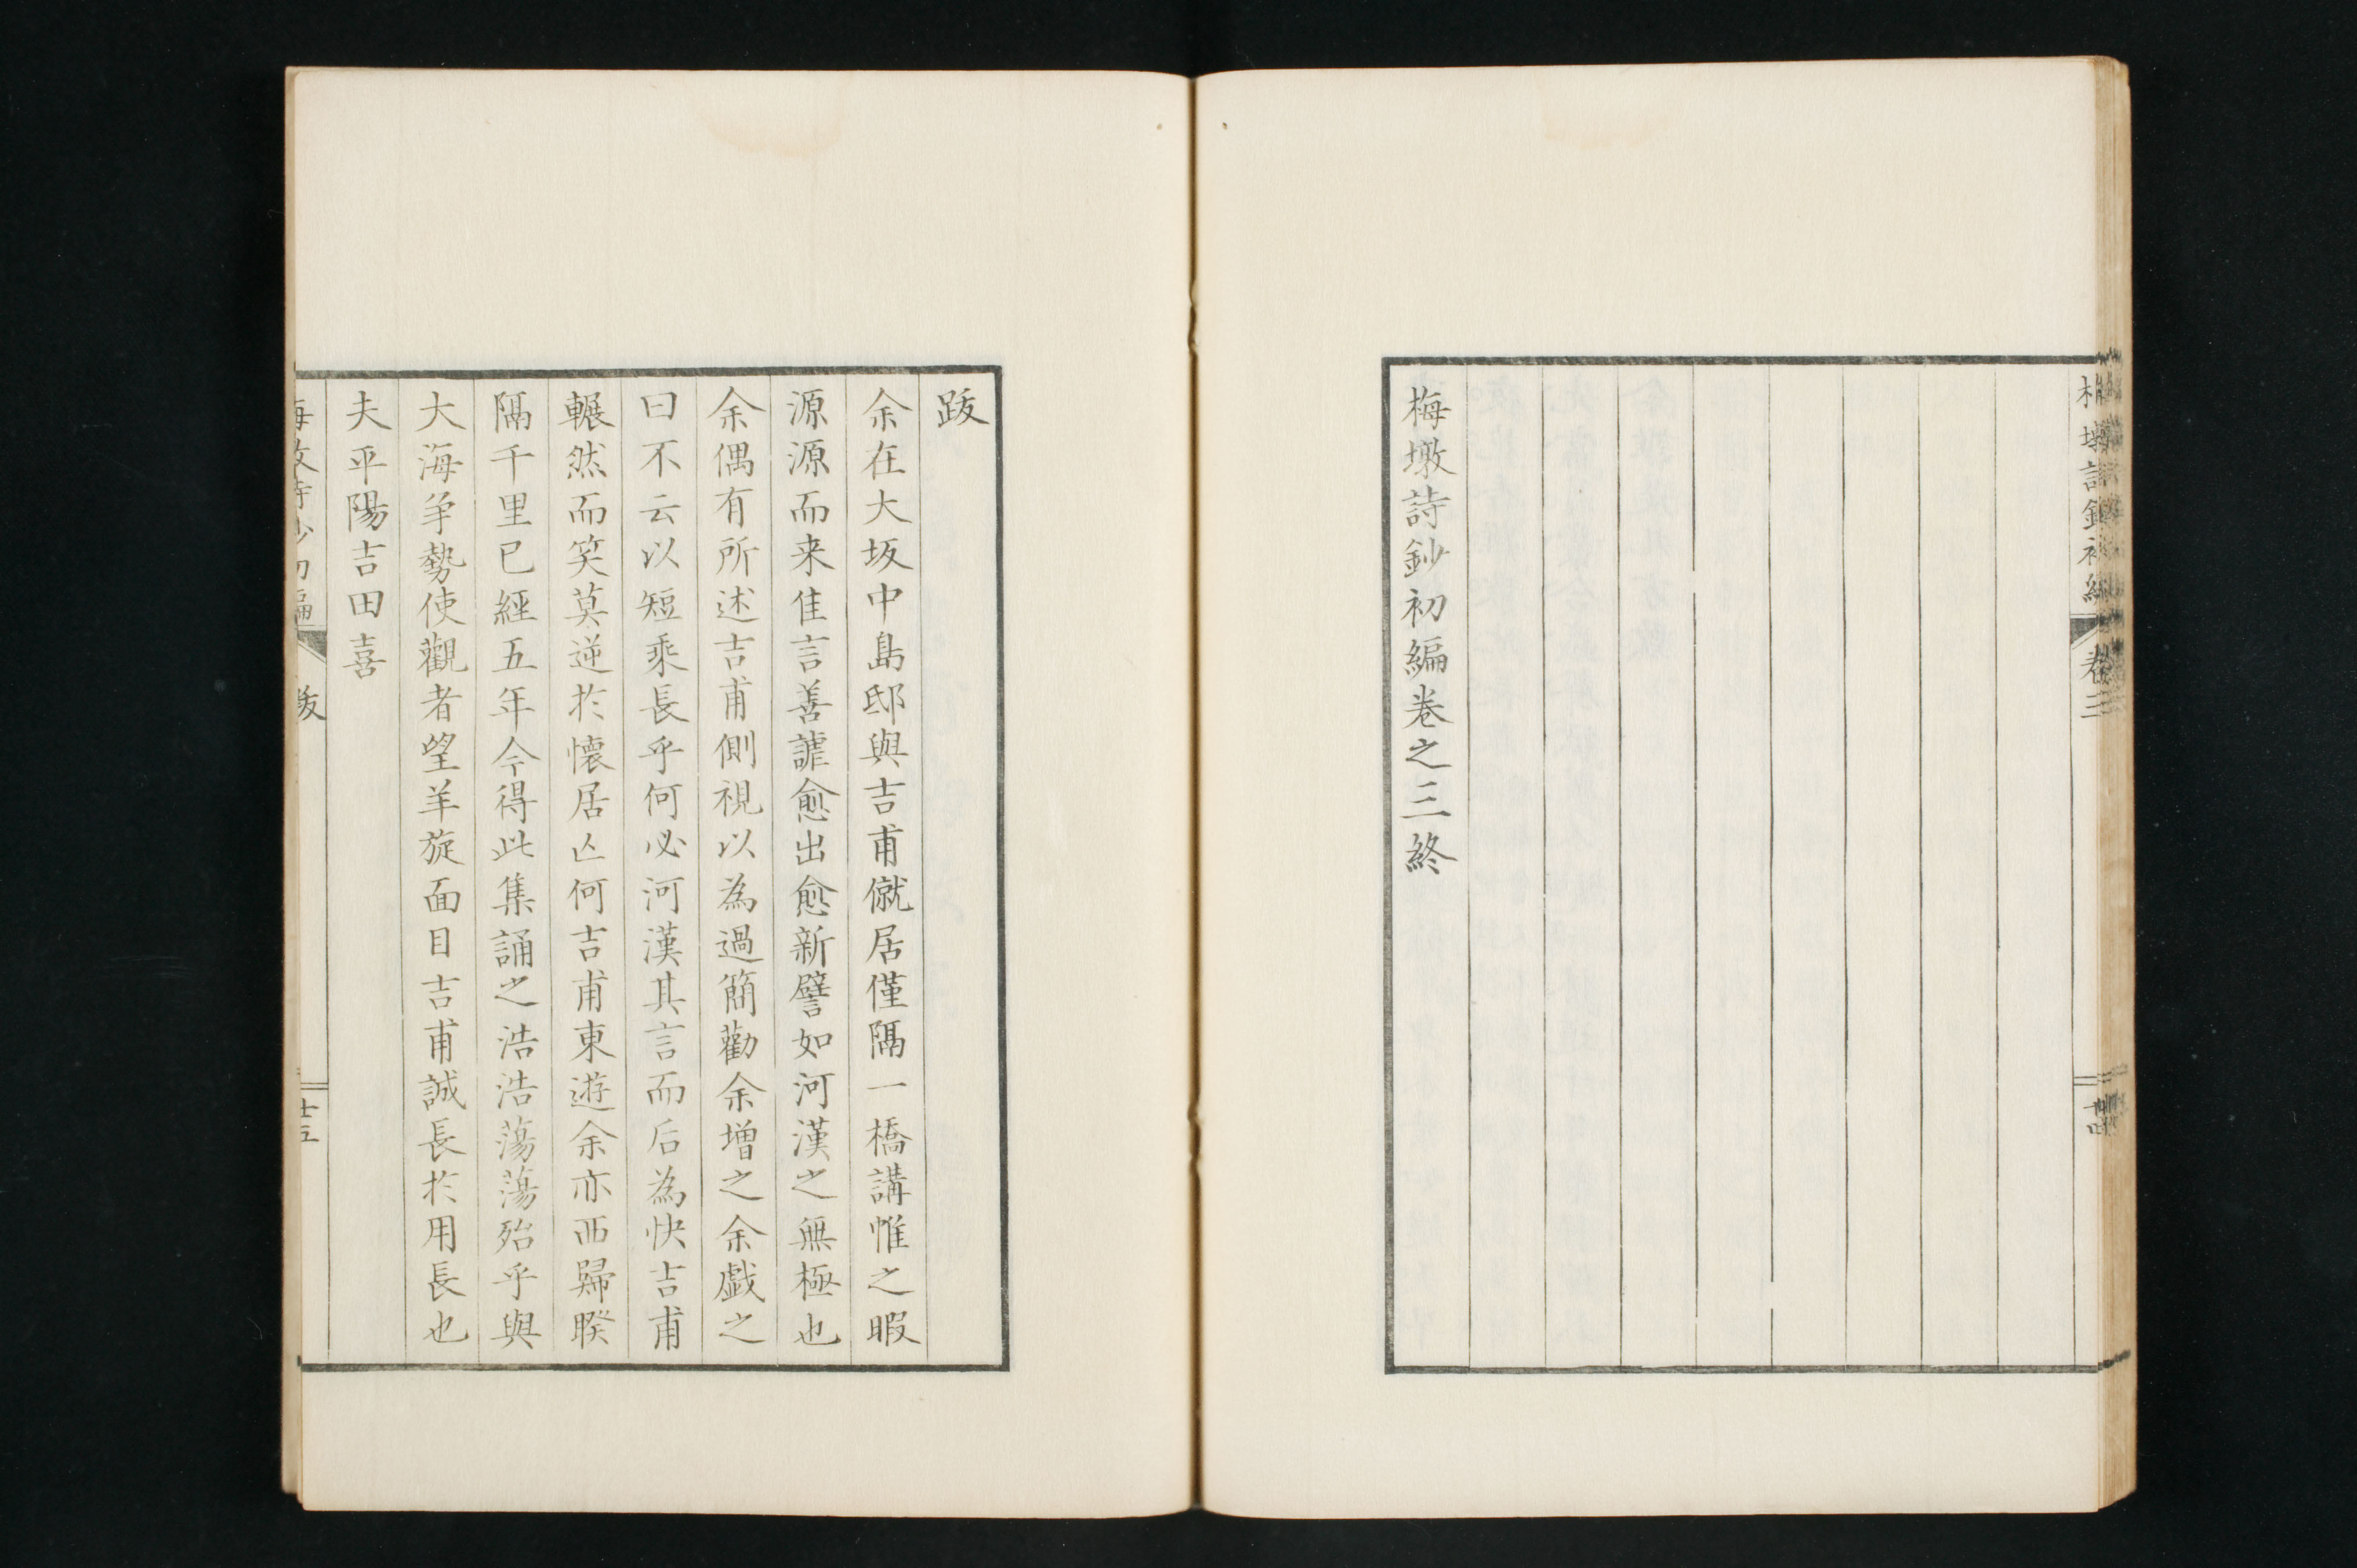 梅墩詩鈔初編卷之三終
跋
余在大坂中島邸與吉甫僦居僅隔一橋講帷之暇
源源而来佳言善謔愈出愈新譬如河漢之無極也
余偶有所述吉甫側視以為過簡勸余増之余戯之
曰不云以短乘長乎何必河漢其言而后為快吉甫
輾然而笑莫逆於懷居亾何吉甫東遊余亦西歸睽
隔千里已經五年今得此集誦之浩浩蕩蕩殆乎與
大海争勢使觀者望羊旋面目吉甫誠長於用長也
夫平陽吉田喜